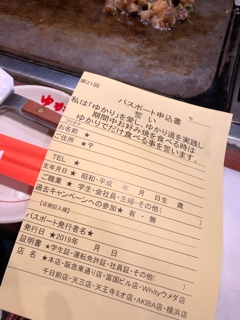 第21回
パスポート申込書
誓い
私は「ゆかり」を愛し、ゆかり道を実践し
期間中お好み焼を食べる時は
ゆかりでだけ食べる事を誓います。
フリガナ
お名前 ★
ご住所 ★〒
TEL ★
生年月日★ 昭和・平成 年 月 日生 歳
ご職業 ★ 学生・会社員・主婦・その他( )
過去キャンペーンへの参加★ 有・無
【店側記入欄】
パスポート発行者名★
発行日 ★2019年 月 日
証明書 ★学生証・運転免許証・社員証・その他( )
店名 ★本店・阪急東通り店・富国ビル店・Whityウメダ店
千日前店・天三店・天王寺ミオ店・AKIBA店・横浜店
ゆか